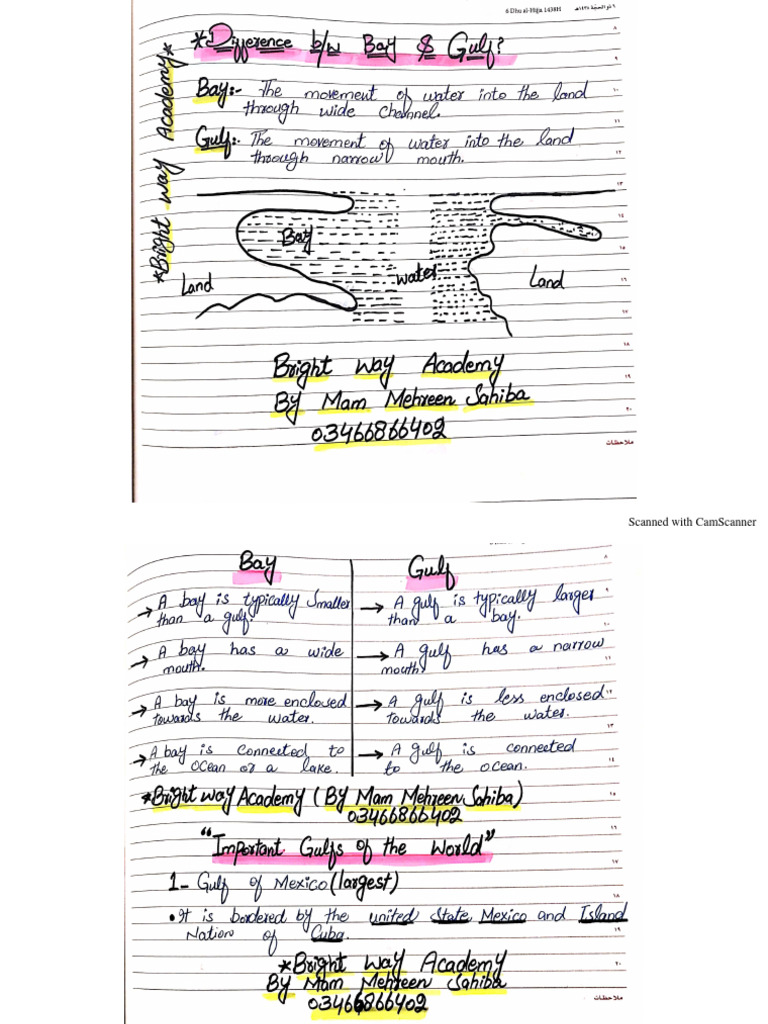 6 Dhu al-Hijja 1438H
*Difference b/w Bay & Gulf?
*Bright Way Academy*
Bay:- The movement of water into the land
through wide channel.
Gulf:- The movement of water into the land
through narrow mouth.
Bay
water
Land
Land
Bright Way Academy
By Mam Mehreen Sahiba
03466866402
ملاحظات
Scanned with CamScanner
Bay
Gulf
→ A bay is typically smaller
than a gulf.
→ A gulf is typically larger
than a bay.
→ A bay has a wide
mouth.
→ A gulf has a narrow
mouth
→ A bay is more enclosed
towards the water.
→ A gulf is less enclosed
towards the water.
→ A bay is connected to
the ocean or a lake.
→ A gulf is connected
to the ocean.
*Bright way Academy (By Mam Mehreen Sahiba)
03466866402
"Important Gulfs of the World"
1- Gulf of Mexico (largest)
• It is bordered by the united State Mexico and Island
Nation of Cuba.
*Bright Way Academy
By Mam Mehreen Sahiba
03466866402
ملاحظات